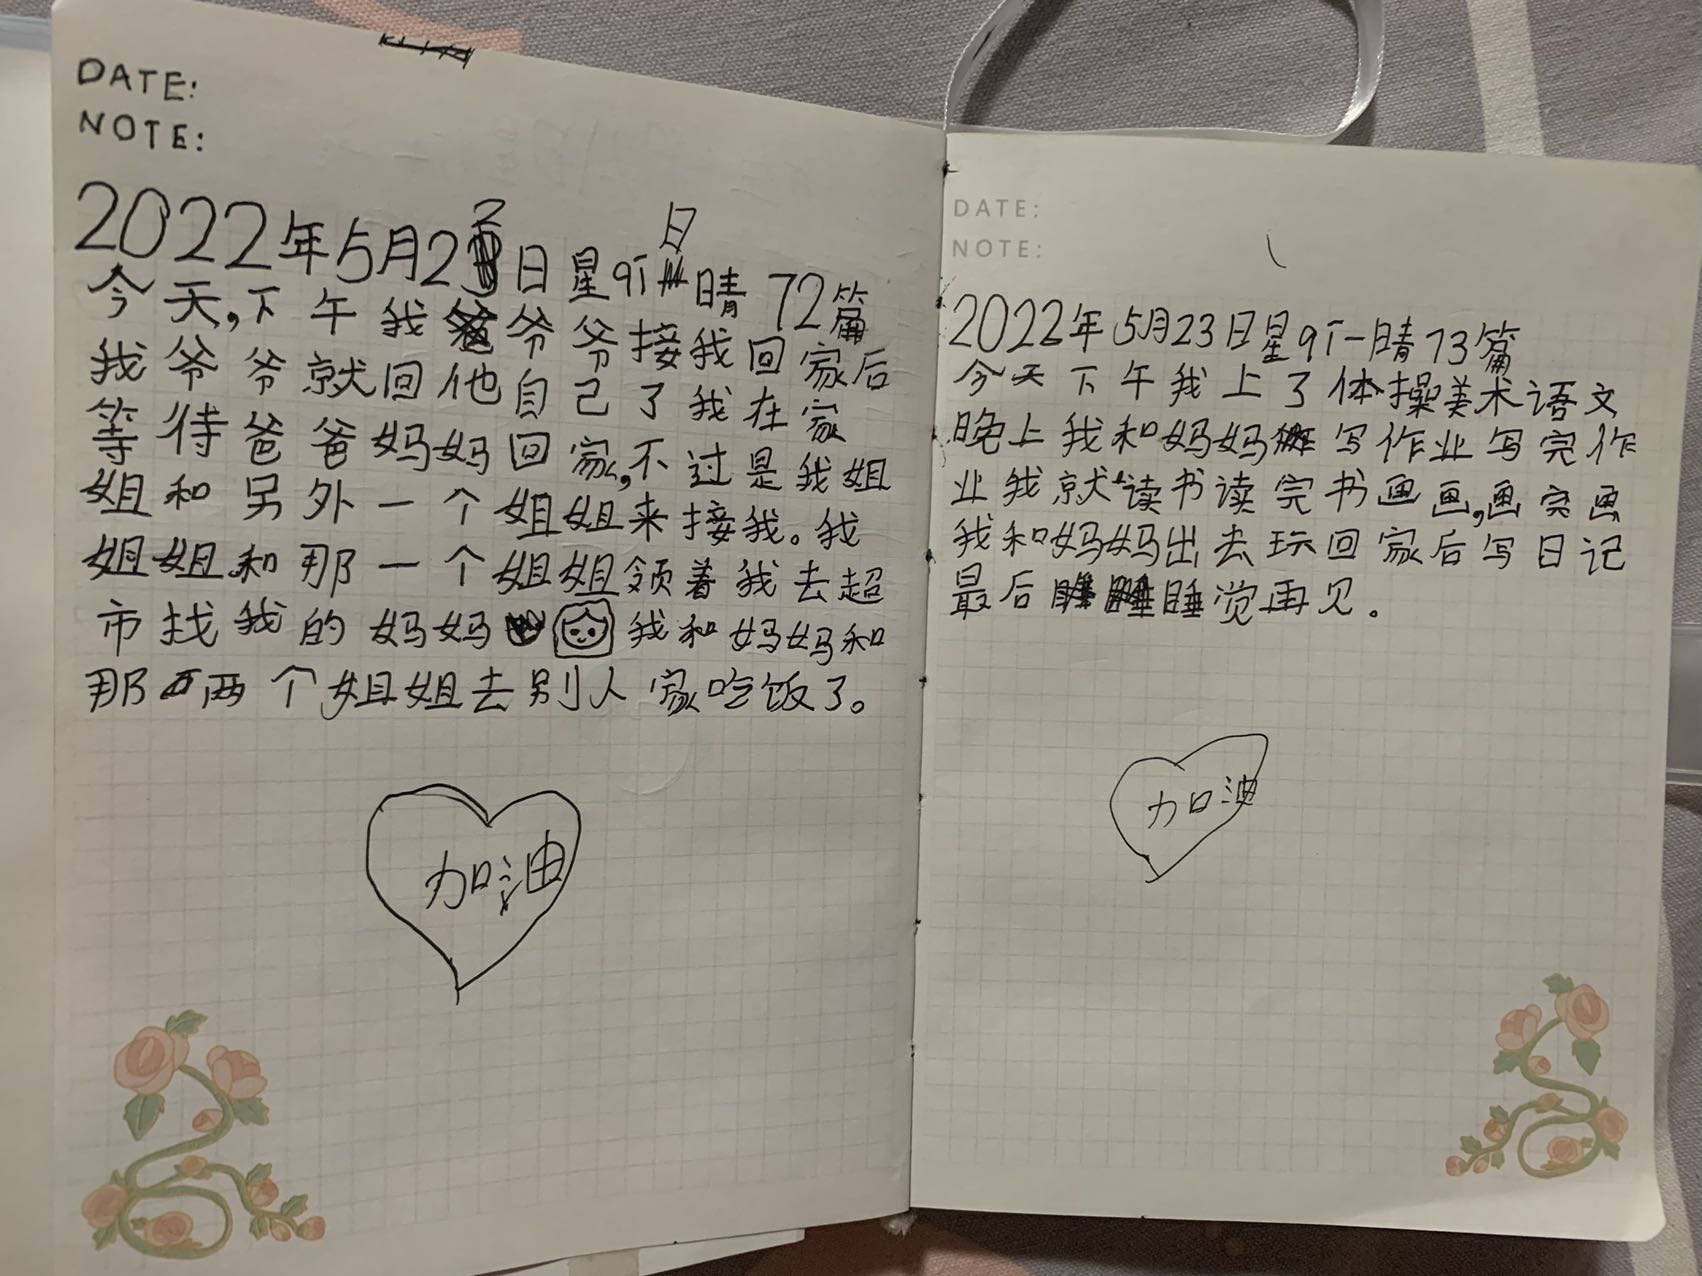 DATE:
NOTE:
2022年5月22日星qī日晴 72篇
今天,下午我爷爷接我回家后
我爷爷就回他自己了我在家
等待爸爸妈妈回家,不过是我姐
姐和另外一个姐姐来接我。我
姐姐和那一个姐姐领着我去超
市找我的妈妈我和妈妈和
那两个姐姐去别人家吃饭了。
加油
DATE:
NOTE:
2022年5月23日星qī一晴73篇
今天下午我上了体操美术语文
晚上我和妈妈写作业写完作
业我就读书读完书画画,画完画
我和妈妈出去玩回家后写日记
最后睡觉再见。
加油